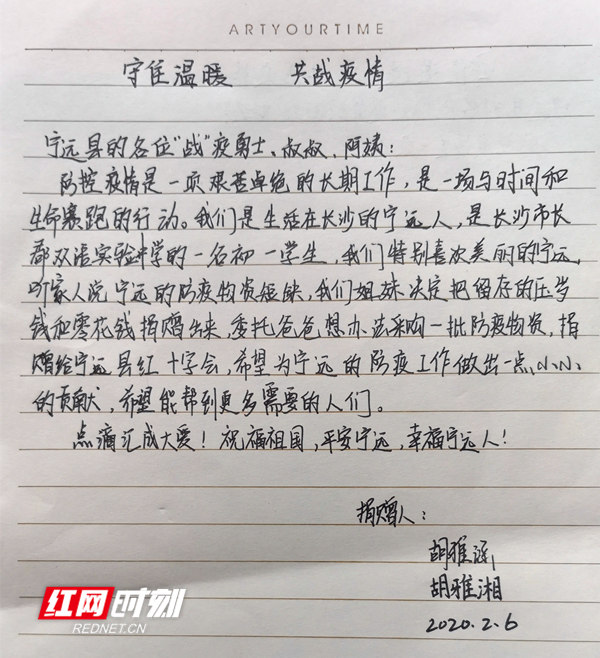 ARTYOURTIME
守住温暖 共战疫情
宁远县的各位“战”疫勇士、叔叔、阿姨：
防控疫情是一项艰苦卓绝的长期工作，是一场与时间和
生命赛跑的行动。我们是生活在长沙的宁远人，是长沙市长
郡双语实验中学的一名初一学生，我们特别喜欢美丽的宁远，
听家人说宁远的防疫物资短缺，我们姐妹决定把留存的压岁
钱和零花钱捐赠出来，委托爸爸想办法采购一批防疫物资，捐
赠给宁远县红十字会，希望为宁远的防疫工作做出一点小小
的贡献，希望能帮到更多需要的人们。
点滴汇成大爱！祝福祖国，平安宁远，幸福宁远人！
捐赠人：
胡雅涵
胡雅湘
2020.2.6
红网时刻
REDNET.CN